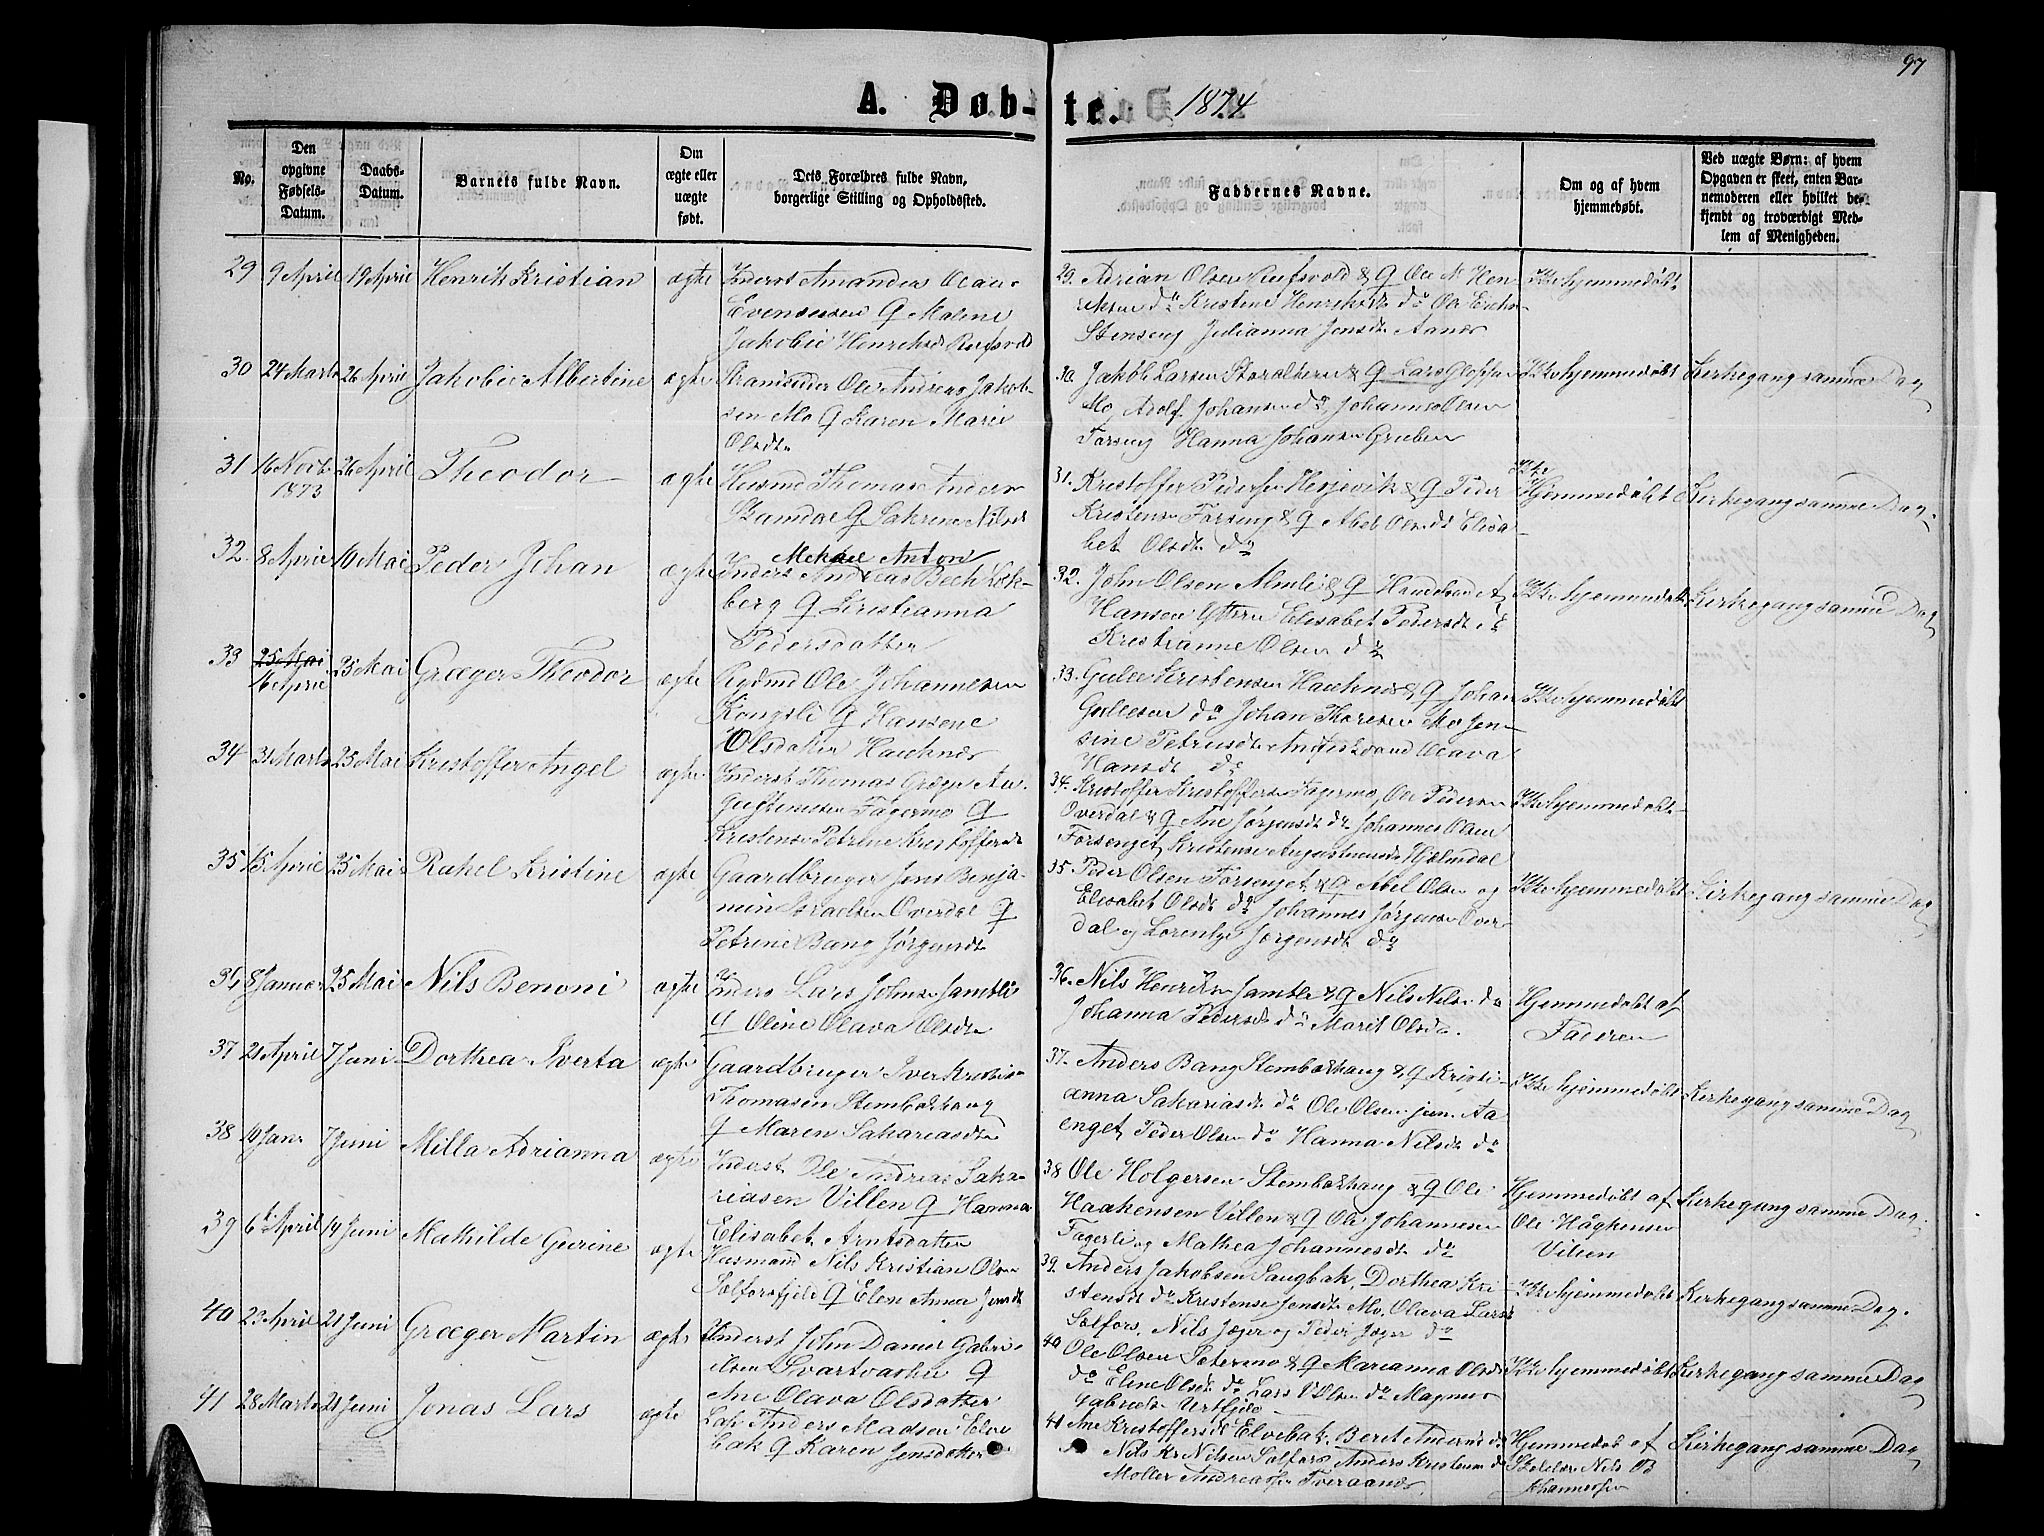 97
A. Døb-te. 1874
No.
Den opgivne Fødsels-Datum.
Daabs-Datum.
Barnets fulde Navn.
Om ægte eller uægte født.
Dets Forældres fulde Navn, borgerlige Stilling og Opholdssted.
Faddernes Navne.
Om og af hvem hjemmedøbt.
Ved uægte Børn: af hvem Opgaven er skeet, enten Barnemoderen eller hvilket bekjendt og troværdigt Medlem af Menigheden.
29 9 April 19 April Henrik Kristian ægte Inderst Amandus Olaus
Evensen G Malene
Jakobie Henriksdt
29. Adrian Olsen & G Ole N Hen-
riksen do Kristine Henriksdt do Ole
Stenseng Julianna Jensdt Aanes
Ikke hjemmedøbt
30 24 Marts 26 April Jakobie Albertine ægte Strandsidder Ole Andreas Jakob-
sen Mo G Karen Marie
Olsdtr
30. Jakob Larsen & G Lars
Mo, Adolf Johansen do, Johannes Olsen
Forseng Hanna Johansn Gruben
Ikke hjemmedøbt Kirkegang samme Dag
31 16 Novb 1873 26 April Theodor ægte Husmd Thomas Anders
G Sakrine Nilsdt
31. Kristoffer Pedersen & G Peder
Kristensen Forseng & G Abel Olsdt Elisa-
bet Olsdt do
Ikke Hjemmedøbt Kirkegang samme Dag
32. 8 April 10 Mai Peder Johan ægte Mekael Anton
Inderst Andreas Bech
berg G Kristianna
Pedersdatter
32. John Olsen Almli & G
Hansen Ytteren Elisabet Pedersdt do
Kristianne Olsen do
Ikke hjemmedøbt Kirkegang samme Dag
33 25 Mai 16 April 25 Mai Græger Theodor ægte Rydmd Ole Johannesen
Kongsli G Hansene
Olsdatter Hauknes
33. Kristensen Hauknes & G Johan
do Johan Thoresen Mo Jen-
sine Petrusdt Olava
Hansdt do
Ikke hjemmedøbt
34 31 Marts 25 Mai Kristoffer Angel ægte Inderst Thomas Græger Au-
gustinussen Fagermo G
Kristense Petrine Kristoffersdt
34. Kristoffer Kristoffersen Fagermo, Ole Pedersen
Overdal & G Ane Jørgensdt do Johannes Olsen
Forsenget, Kristense Augustinusdt Hjelmdal
Ikke hjemmedøbt
35 15 April 25 Mai Rakel Kristine ægte Gaardbruger Jens Benja-
min Israelsen Overdal G
Petrine Bang Jørgensdt
35 Peder Olsen Forsenget & G Abel Olsen og
Elisabet Olsdt do Johannes Jørgensen Over-
dal og Lorentze Jørgensdt do
Ikke hjemmedøbt Kirkegang samme Dag
36 8 Januar 25 Mai Nils Benoni ægte Inders Lars Johnsen Jamtli
G Oline Olava Olsdtr
36. Nils Henriksen Jamtli & G Nils Nilsn do
Johanna Pedersdt do Marit Olsdt
Hjemmedøbt af
Faderen
37 21 April 7 Juni Dorthea Iverta ægte Gaardbruger Iver Kristian
Thomasen Stenbækhaug
G Maren Sakariasdtr
37. Anders Bang Stenbækhaug & G Kristi-
anna Sakariasdt do Ole Olsen jun. Aa-
enget, Peder Olsen do Hanna Nilsdt do
Ikke hjemmedøbt Kirkegang samme Dag
38 10 Janr 7 Juni Milla Adrianna ægte Inderst Ole Andreas Saka-
riasen Villen G Hanna
Elisabet Arntsdatter
38 Ole Holgersen Stenbækhaug & G Ole
Haakensen Villen & G Ole Johannesen
Fagerli og Mathea Johannesdt do
Hjemmedøbt af
Ole Hågkensen
Villen
Kirkegang samme Dag.
39 6t April 14 Juni Mathilde Gurine ægte Husmand Nils Kristian Olsen
Selforsfjeld G Elen Anna Jensdt
39. Anders Jakobsen Langbak, Dorthea Kri-
stensdt do Kristense Jensdt Mo, Olava Larsdt
Selfors, Nils Jæger og Peder Jæger do
Ikke hjemmedøbt Kirkegang samme Dag.
40 23 April 21 Juni Græger Martin ægte Inderst John Daniel Gabri-
elsen Svartvasheia G
Ane Olava Olsdatter
40 Ole Olsen & G Marianna Olsdt
do Eline Olsdt do Lars Olsen do Magnus
Gabrielsn Urtfjeld
Ikke hjemmedøbt Kirkegang samme Dag
41 28 Marts 21 Juni Jonas Lars ægte Anders Madsen Elve-
bak G Karen Jensdatter
41 Ane Kristoffersdt Elvebak, Beret Andersdt do
Nils Kr Nilsen Selfors Anders Kristensen do
Møller Andreassen Tveraanes.
Hjemmedøbt af
Nils B
Johannessen
Kirkegang samme Dag